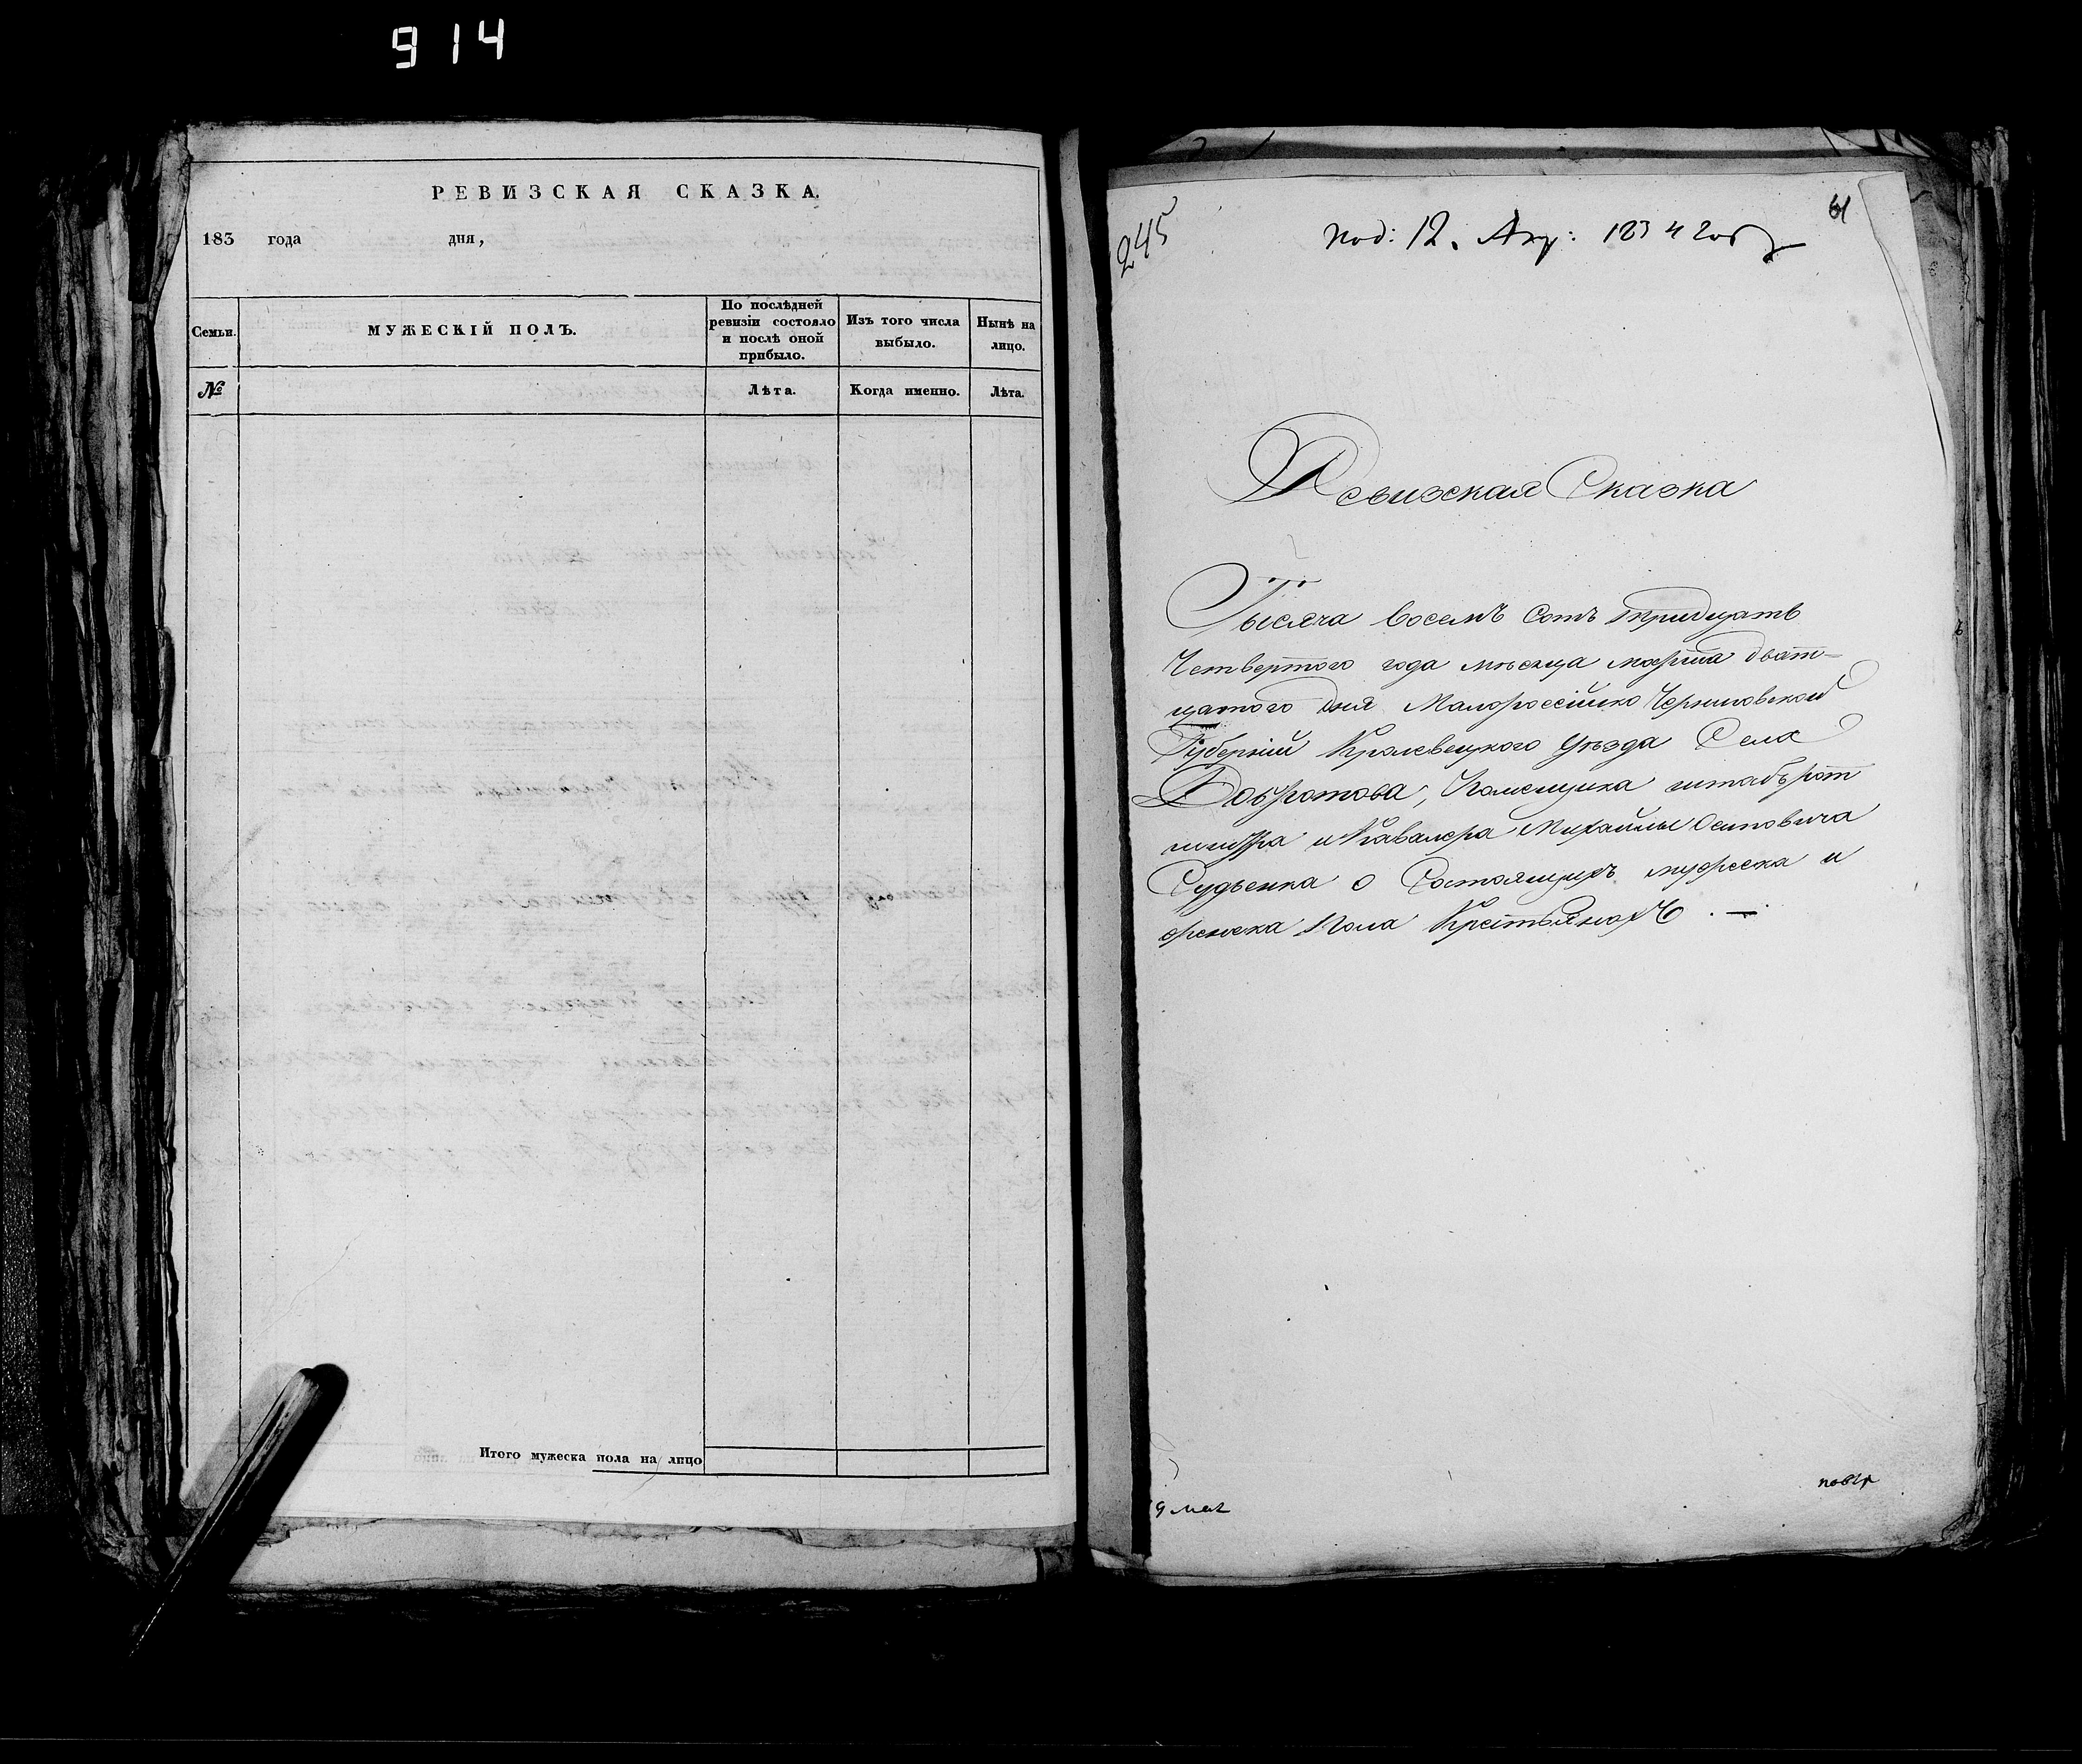 914
РЕВИЗСКАЯ СКАЗКА.
183 года дня,
Семьи.
МУЖЕСКІЙ ПОЛЪ.
По послѣдней
ревизіи состояло
и послѣ оной
прибыло.
Изъ того числа
выбыло.
Нынѣ на
лицо.
№
Лѣта.
Когда именно.
Лѣта.
Итого мужеска пола на лицо
245
61
под: 12. Апр: 1834 года
Ревизская Сказка
Тысяча восемъ сотъ тридцать
Четвертого года мѣсяца марта дват-
цатого дня Малороссійско Черниговской
Губерніи Кролевецкого уѣзда Села
Добротова, Помещика штабърот
мистра и Кавалера Михайлы Осиповича
Судьенка о Состоящихъ мужеска и
женска пола Крестьянахъ. —